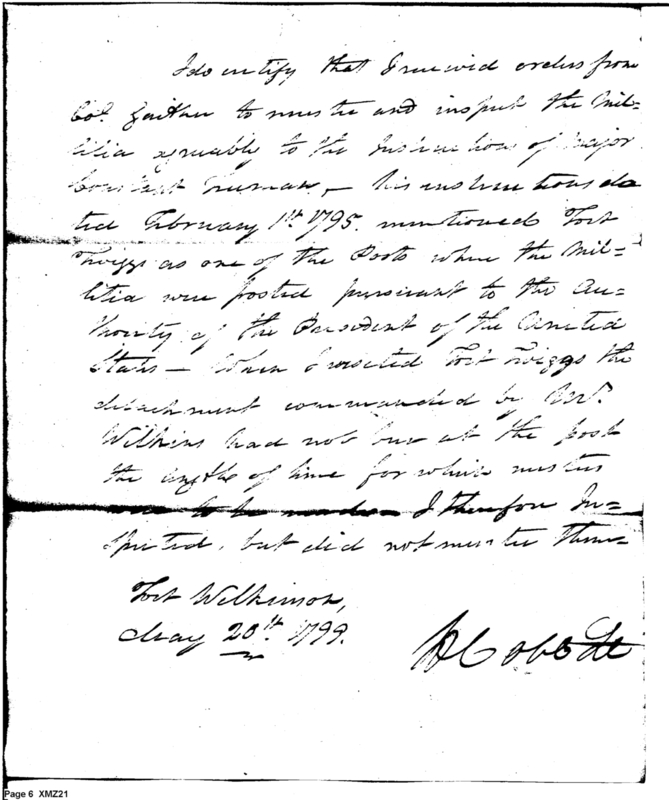 I do certify that I received orders from
Col. Gaither to muster and inspect the Mil=
litia agreeably to the Instructions of Major
Constant Freeman, – his instructions da
ted February 1st. 1795. mentioned Fort
Twiggs as one of the Posts where the Mil=
litia were posted pursuant to the Au=
thority of the President of the United
States – When I visited Fort Twiggs the
detachment commanded by
Wilkins had not been at the post
the length of time for which musters
were to be made – I therefore In=
spected, but did not muster them–
Fort Wilkinson,
May 20th. 1799.
Cobb Lt
Page 6 XMZ21